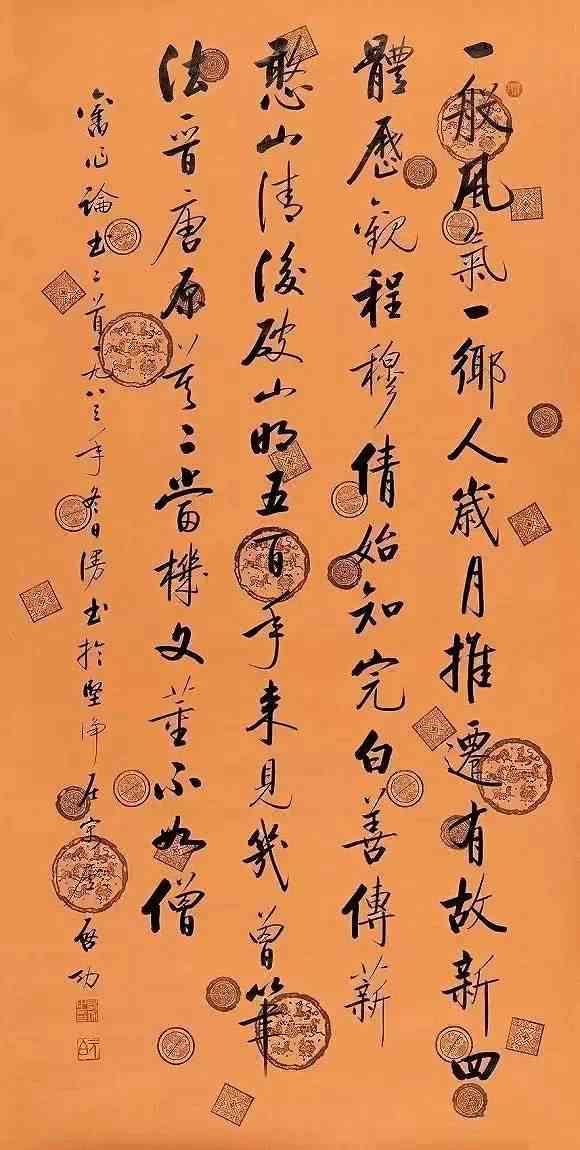 一般風氣一鄉人歲月推遷有故新四
體歷觀程穆倩始知完白善傳薪
憨山清後破山明五百年來見幾曾筆
法晉唐原莫二當機文董不如僧
舊作論書二首一九八三年冬日漫書於堅淨居寓廬 啟功